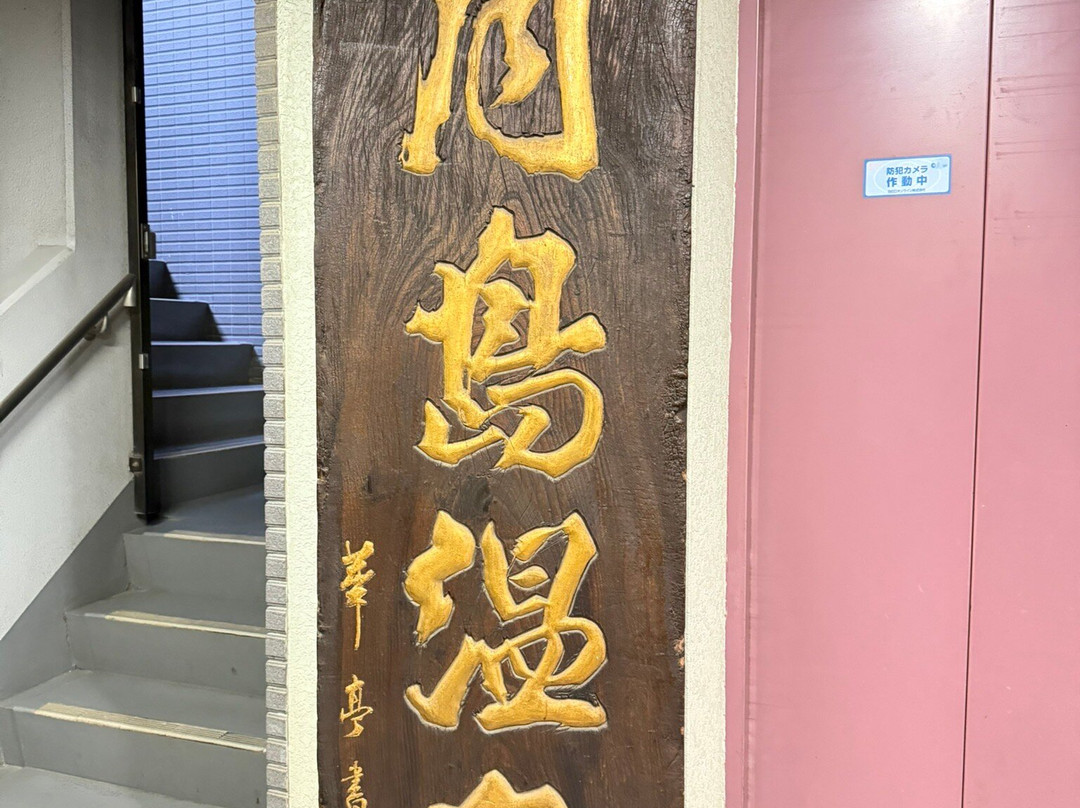 島温
華亭書
防犯カメラ
作動中